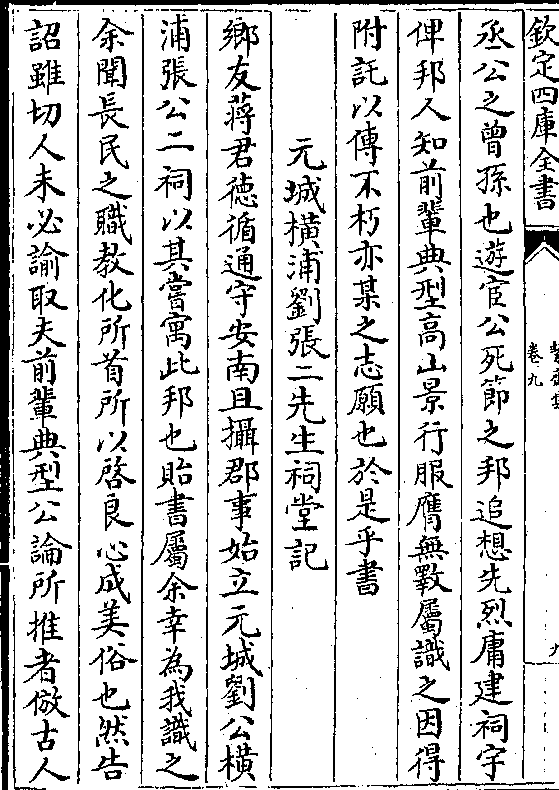 欽定四庫全書
卷九
丞公之曾孫也遊宦公死節之邦追想先烈庸建祠宇
俾邦人知前輩典型高山景行服膺無斁屬識之因得
附託以傳不朽亦某之志願也於是乎書
元城橫浦劉張二先生祠堂記
鄉友蔣君德循通守安南且攝郡事始立元城劉公橫
浦張公二祠以其嘗寓此邦也貽書屬余幸為我識之
余聞長民之職教化所首所以啓良心成美俗也然告
詔雖切人未必諭取夫前輩典型公論所推者倣古人